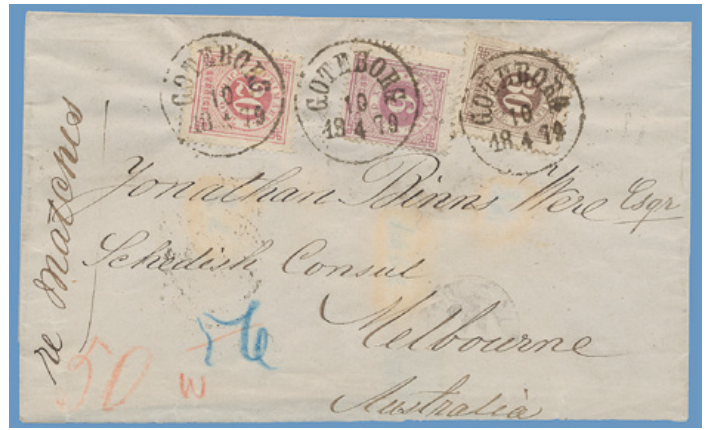 GÖTEBORG
10
18 4 79
GÖTEBORG
10
18 4 79
GÖTEBORG
10
18 4 79
20
6
30
re Matches
Jonathan Binns Were Esqr
Schedish Consul
Melbourne
Australia
50
W